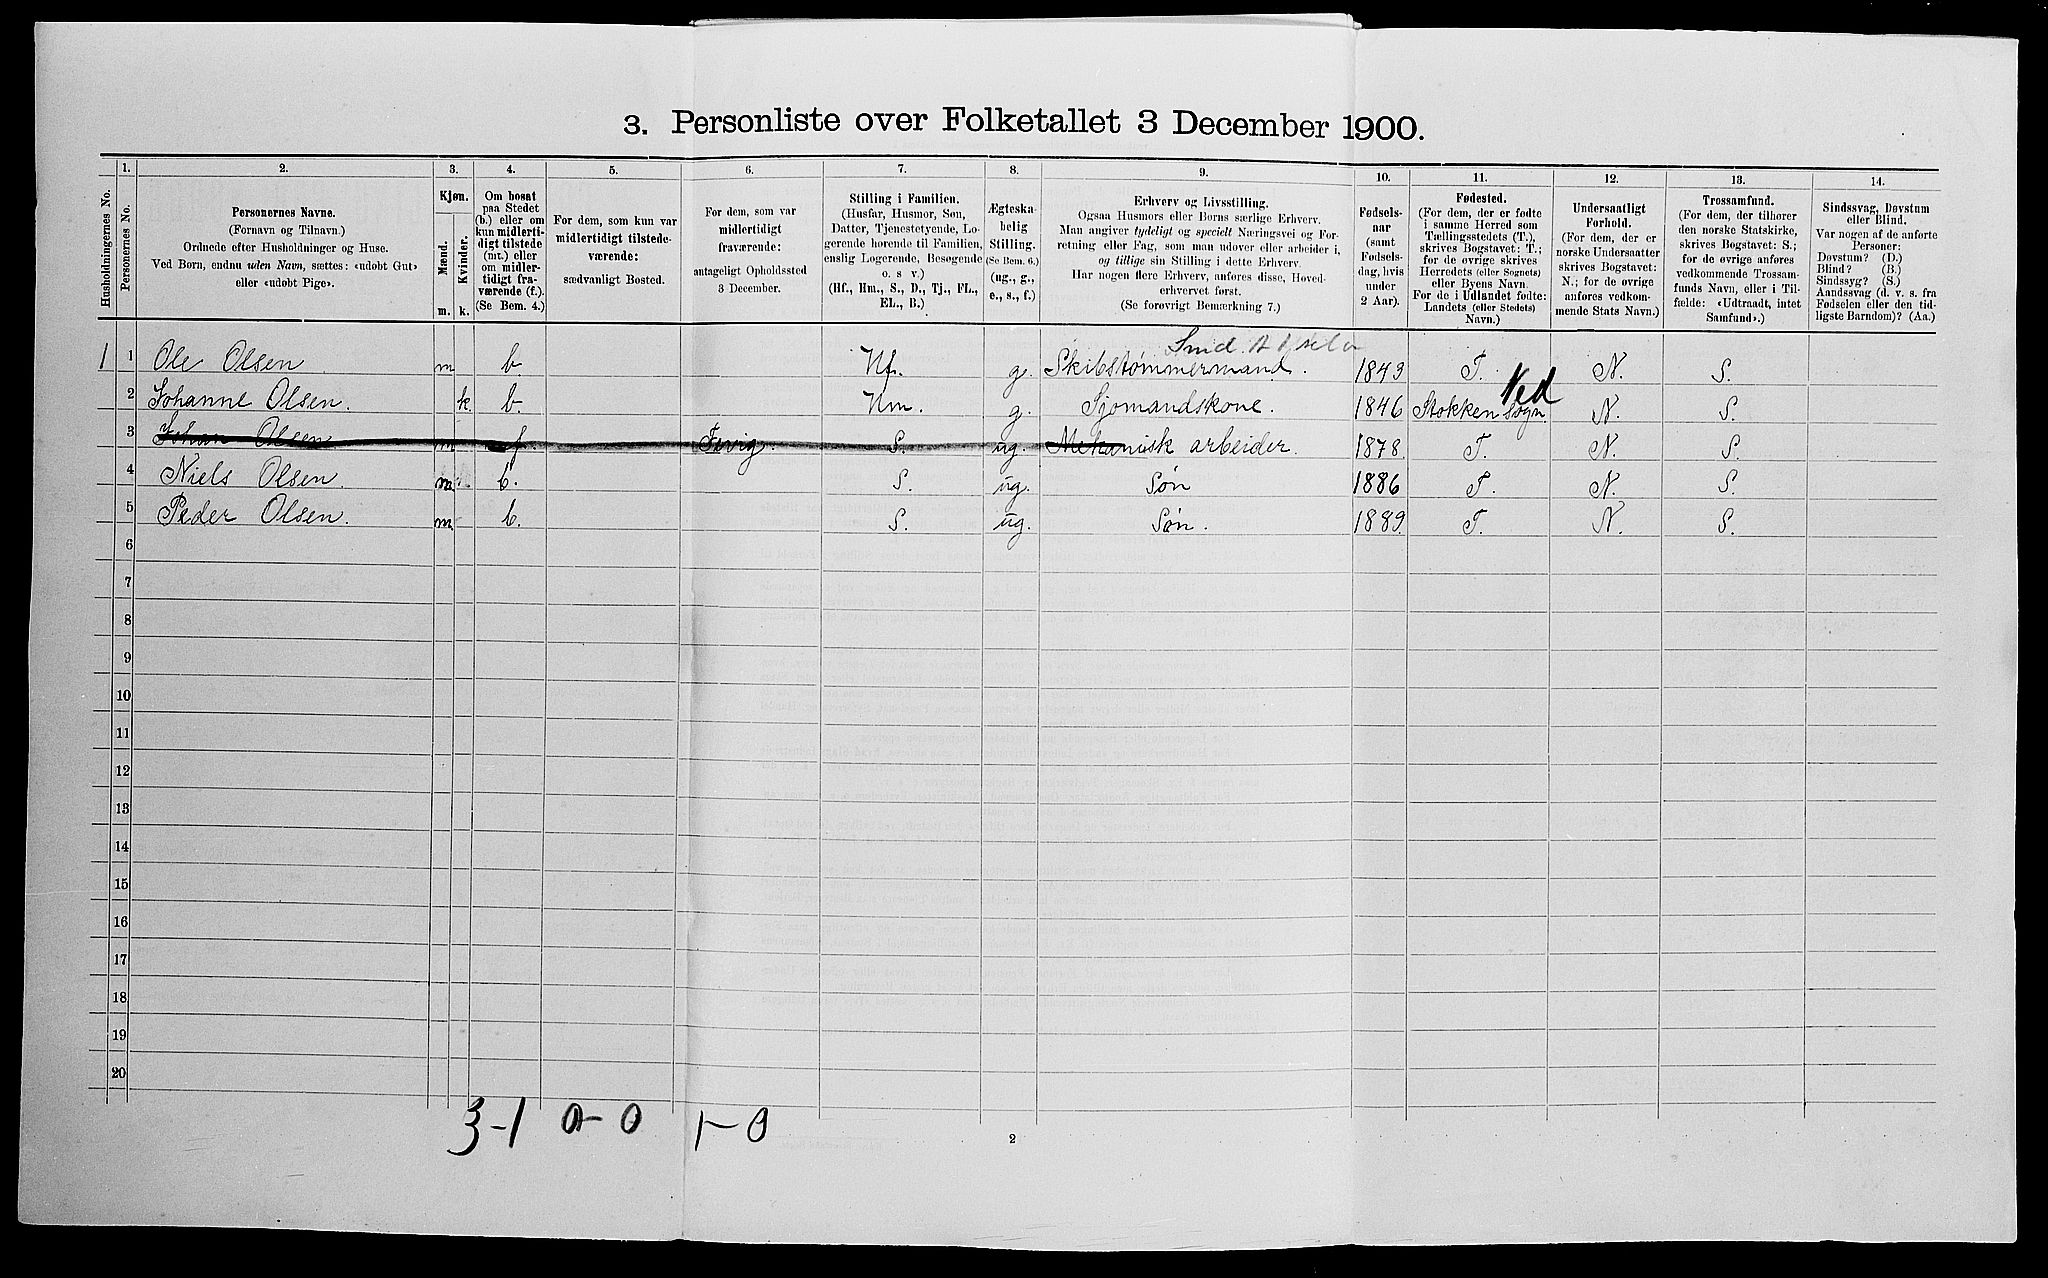 3. Personliste over Folketallet 3 December 1900.
Husholdningernes No.
1.
Personernes No.
2.
Personernes Navne.
(Fornavn og Tilnavn.)
Ordnede efter Husholdninger og Huse.
Ved Børn, endnu uden Navn, sættes: «udøbt Gut»
eller «udøbt Pige».
3.
Kjøn.
Mænd.
Kvinder.
m. k.
4.
Om bosat
paa Stedet
(b.) eller om
kun midlerti-
digt tilstede
(mt.) eller
om midler-
tidigt fra-
værende (f.).
(Se Bem. 4.)
5.
For dem, som kun var
midlertidigt tilstede-
værende:
sædvanligt Bosted.
6.
For dem, som var
midlertidigt
fraværende:
antageligt Opholdssted
3 December.
7.
Stilling i Familien.
(Husfar, Husmor, Søn,
Datter, Tjenestetyende, Lo-
gerende hørende til Familien,
enslig Logerende, Besøgende
o. s v.)
(Hf., Hm., S., D., Tj., FL.,
EL., B.)
8.
Ægteska-
belig
Stilling.
(Se Bem. 6.)
(ug., g.,
e., s., f.)
9.
Erhverv og Livsstilling.
Ogsaa Husmors eller Børns særlige Erhverv.
Man angiver tydeligt og specielt Næringsvei og For-
retning eller Fag, som man udøver eller arbeider i,
og tillige sin Stilling i dette Erhverv.
Har nogen flere Erhverv, anføres disse, Hoved-
erhvervet først.
(Se forøvrigt Bemærkning 7.)
10.
Fødsels-
aar
(samt
Fødsels-
dag, hvis
under
2 Aar).
11.
Fødested.
(For dem, der er fødte
i samme Herred som
Tællingsstedets (T.),
skrives Bogstavet: T.;
for de øvrige skrives
Herredets (eller Sognets)
eller Byens Navn.
For de i Udlandet fødte:
Landets (eller Stedets)
Navn.)
12.
Undersaatligt
Forhold.
(For dem, der er
norske Undersaatter
skrives Bogstavet:
N.; for de øvrige
anføres vedkom-
mende Stats Navn.)
13.
Trossamfund.
(For dem, der tilhører
den norske Statskirke,
skrives Bogstavet: S.;
for de øvrige anføres
vedkommende Trossam-
funds Navn, eller i Til-
fælde: «Udtraadt, intet
Samfund».)
14.
Sindssvag, Døvstum
eller Blind.
Var nogen af de anførte
Personer:
Døvstum? (D.)
Blind? (B.)
Sindssyg? (S.)
Aandssvag (d. v. s. fra
Fødselen eller den tid-
ligste Barndom)? (Aa.)
1 1 Ole Olsen m b Hf. g. Skibstømmermand. 1849 T. N. S.
2 Johanne Olsen. k. b. Hm. g. Sjømandskone. 1846 Stokken Sogn Ned N. S.
3 Johan Olsen m f. Fevig. S. ug. Mekanisk arbeider. 1878. T. N. S.
4 Niels Olsen. m. b. S. ug. Søn 1886 T. N. S.
5 Peder Olsen. m. b. S. ug. Søn. 1889. T. N. S.
6
7
8
9
10
11
12
13
14
15
16
17
18
19
20
3-1 0-0 1-0
2